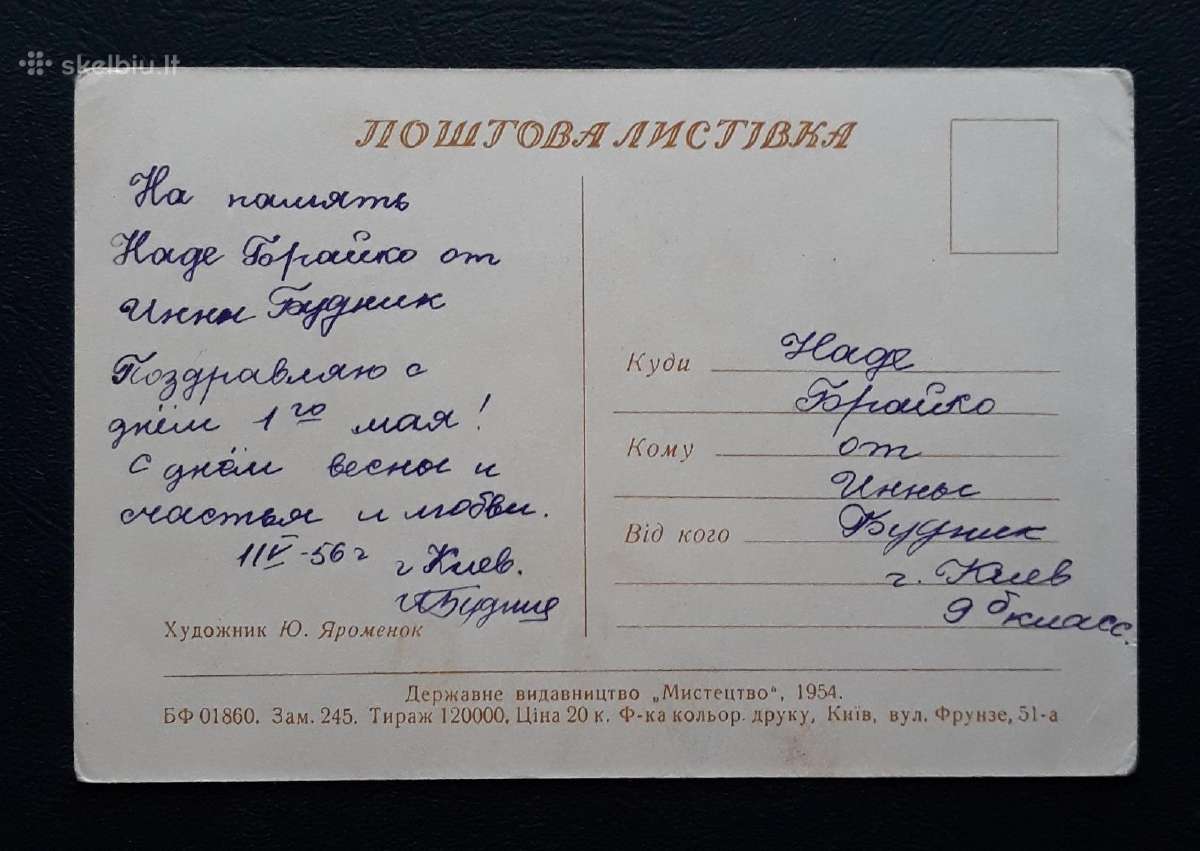 skelbiu.lt
ПОШТОВА ЛИСТІВКА
На память
Наде Брайко от
Инны Будник
Поздравляю с
днём 1го мая!
С днём весны и
счастья и любви.
1/V-56 г
г Киев.
Куди Наде
Брайко
Кому от
Инны
Від кого Будник
г. Киев
9 б класс.
Художник Ю. Яроменок
Державне видавництво „Мистецтво“, 1954.
БФ 01860. Зам. 245. Тираж 120000. Ціна 20 к. Ф-ка кольор. друку, Київ, вул. Фрунзе, 51-а